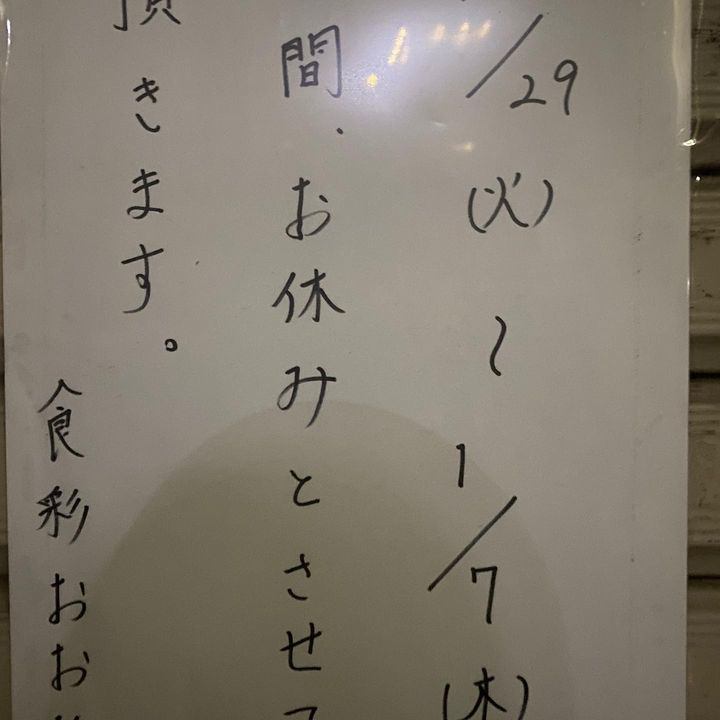 /29(火)〜1/7(木)
間、お休みとさせて
頂きます。
食彩おお